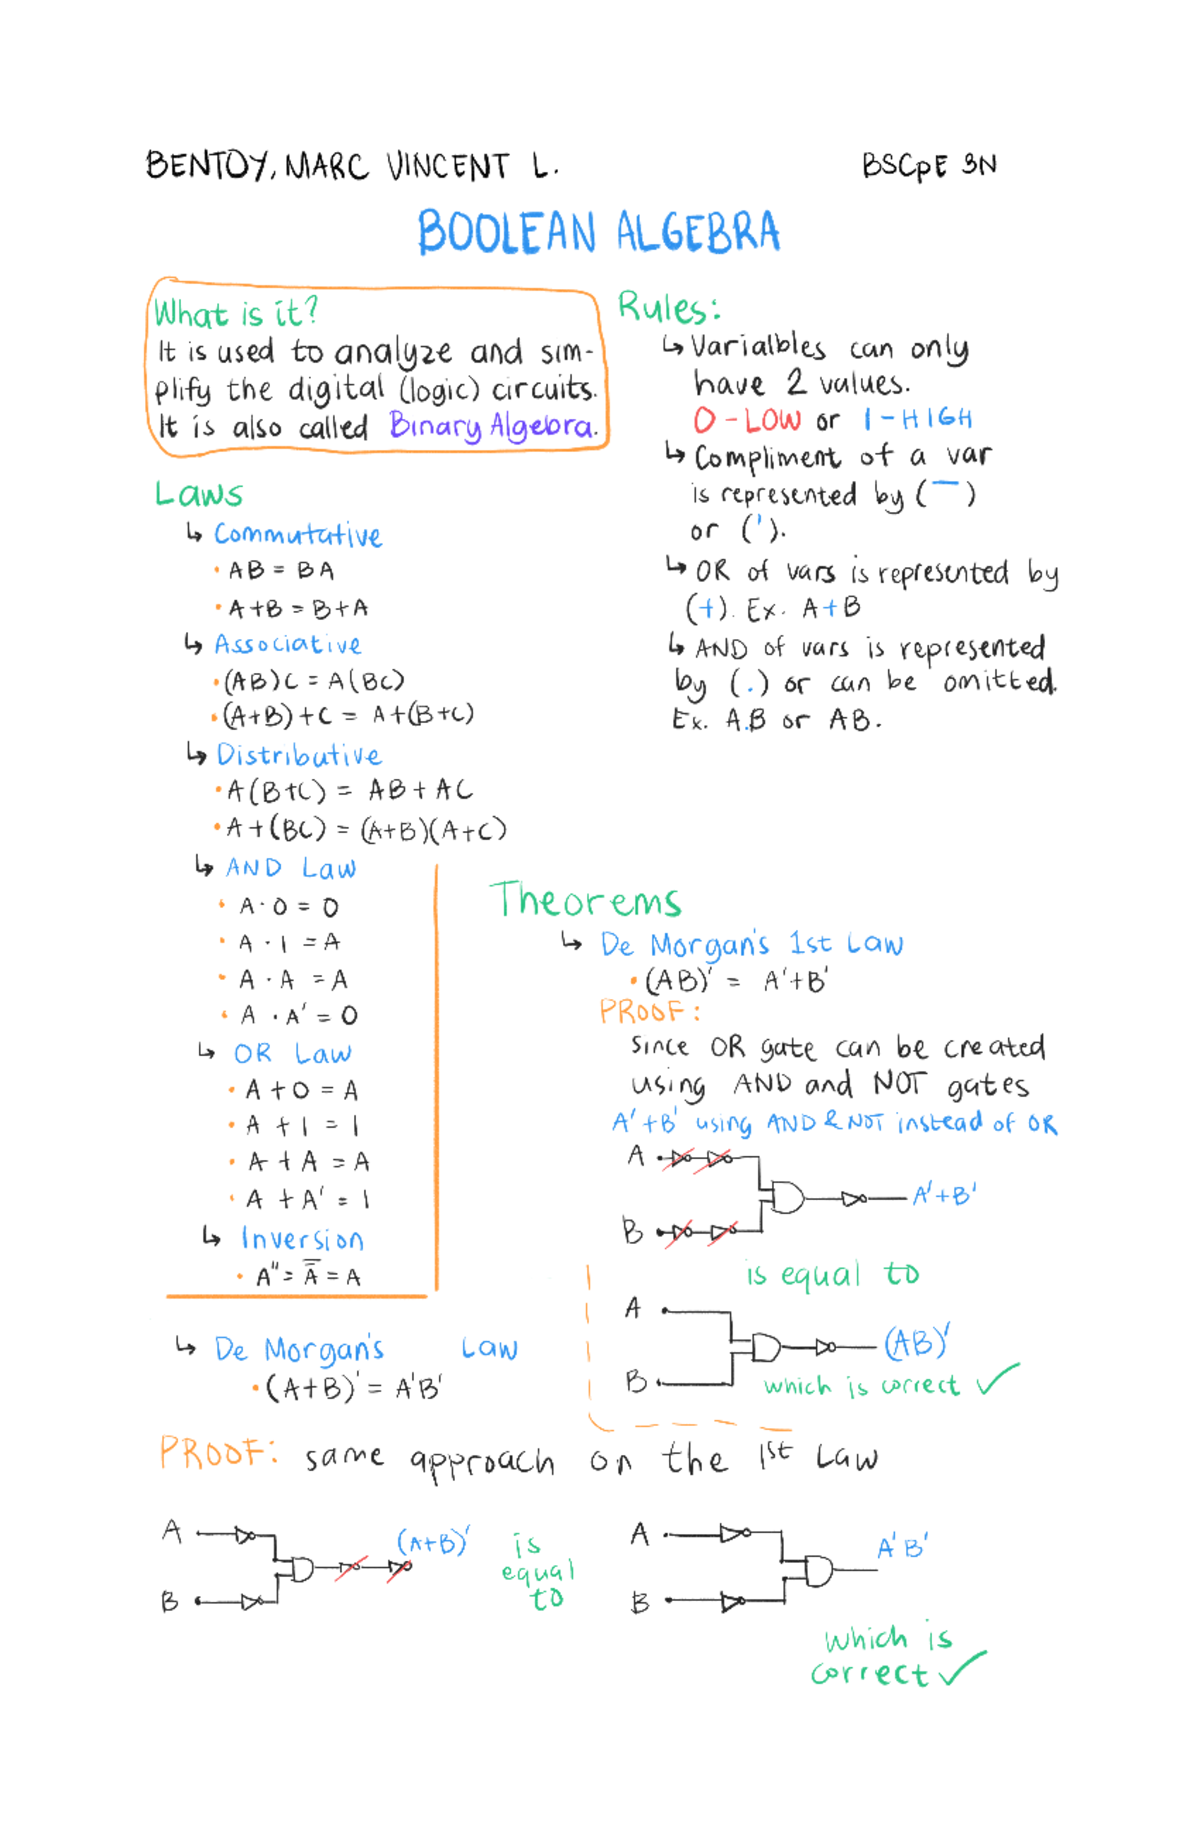 BENTOY, MARC VINCENT L.
BSCpE 3N
BOOLEAN ALGEBRA
What is it?
It is used to analyze and sim-
plify the digital (logic) circuits.
It is also called Binary Algebra.
Rules:
↳ Varialbles can only
have 2 values.
0 - LOW or 1 - HIGH
↳ Compliment of a var
is represented by (‾)
or (').
↳ OR of vars is represented by
(+). Ex. A+B
↳ AND of vars is represented
by (.) or can be omitted.
Ex. A.B or AB.
Laws
↳ Commutative
• AB = BA
• A+B = B+A
↳ Associative
• (AB)C = A(BC)
• (A+B)+C = A+(B+C)
↳ Distributive
• A(B+C) = AB + AC
• A+(BC) = (A+B)(A+C)
↳ AND Law
• A·0 = 0
• A·1 = A
• A·A = A
• A·A' = 0
↳ OR Law
• A+0 = A
• A+1 = 1
• A+A = A
• A+A' = 1
↳ Inversion
• A'' = A̿ = A
Theorems
↳ De Morgan's 1st Law
• (AB)' = A'+B'
PROOF:
Since OR gate can be created
using AND and NOT gates
A'+B' using AND & NOT instead of OR
A
A'+B'
B
is equal to
A
(AB)'
B
which is correct ✓
↳ De Morgan's Law
• (A+B)' = A'B'
PROOF: same approach on the 1st Law
A
(A+B)'
B
is
equal
to
A
A'B'
B
which is
correct ✓